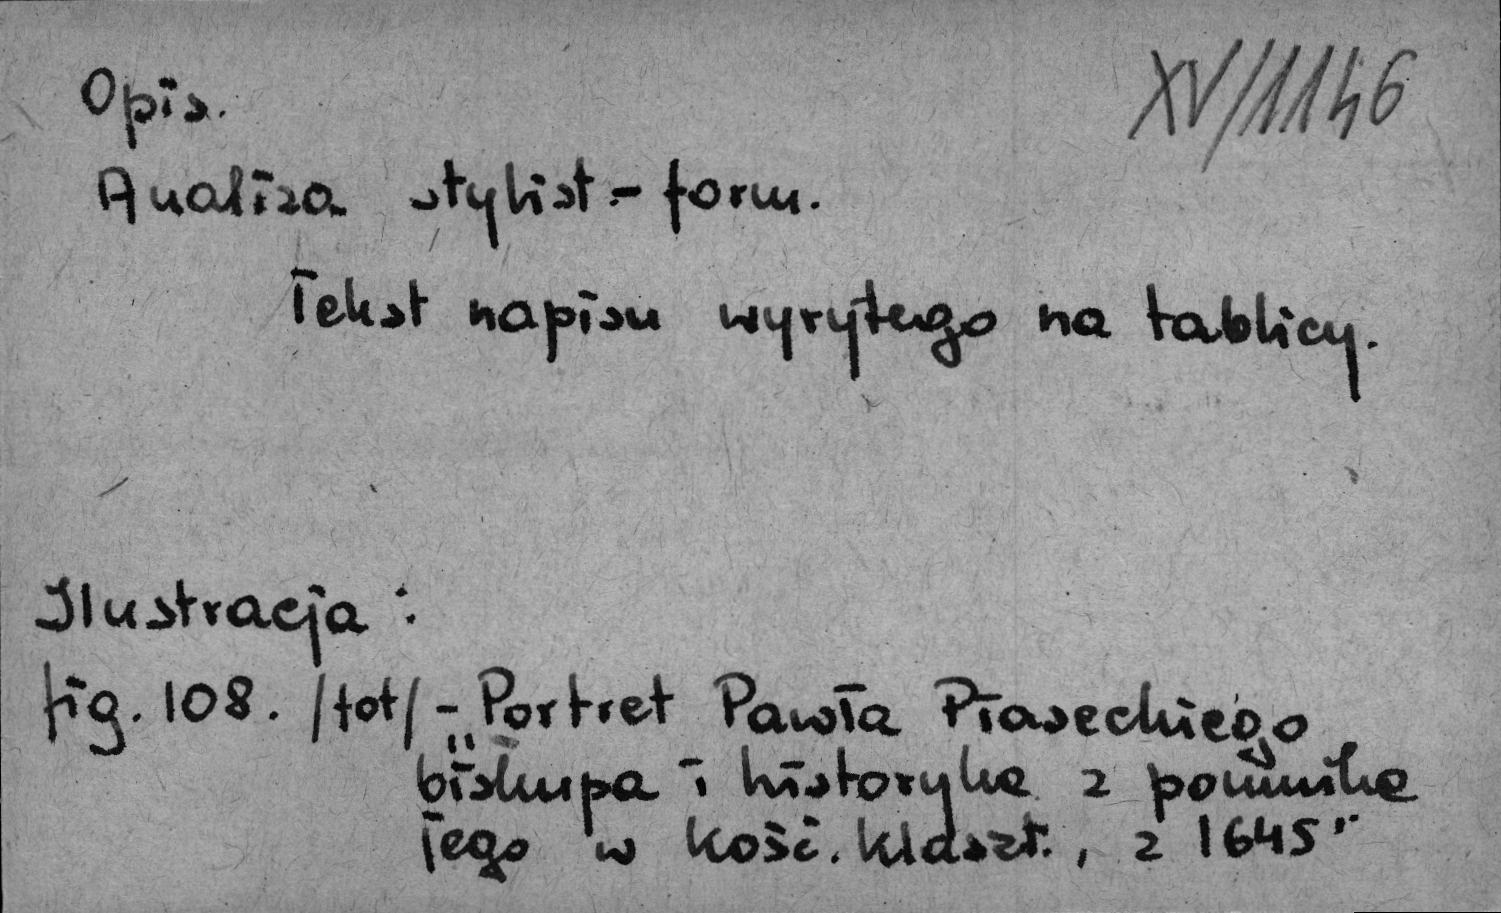 XV/1146
Opis.
Analiza stylist.-form.
Tekst napisu wyrytego na tablicy.
Ilustracja :
fig. 108. /fot/ - „Portret Pawła Piaseckiego
biskupa i historyka z pomnika
jego w kość. klaszt., z 1645"